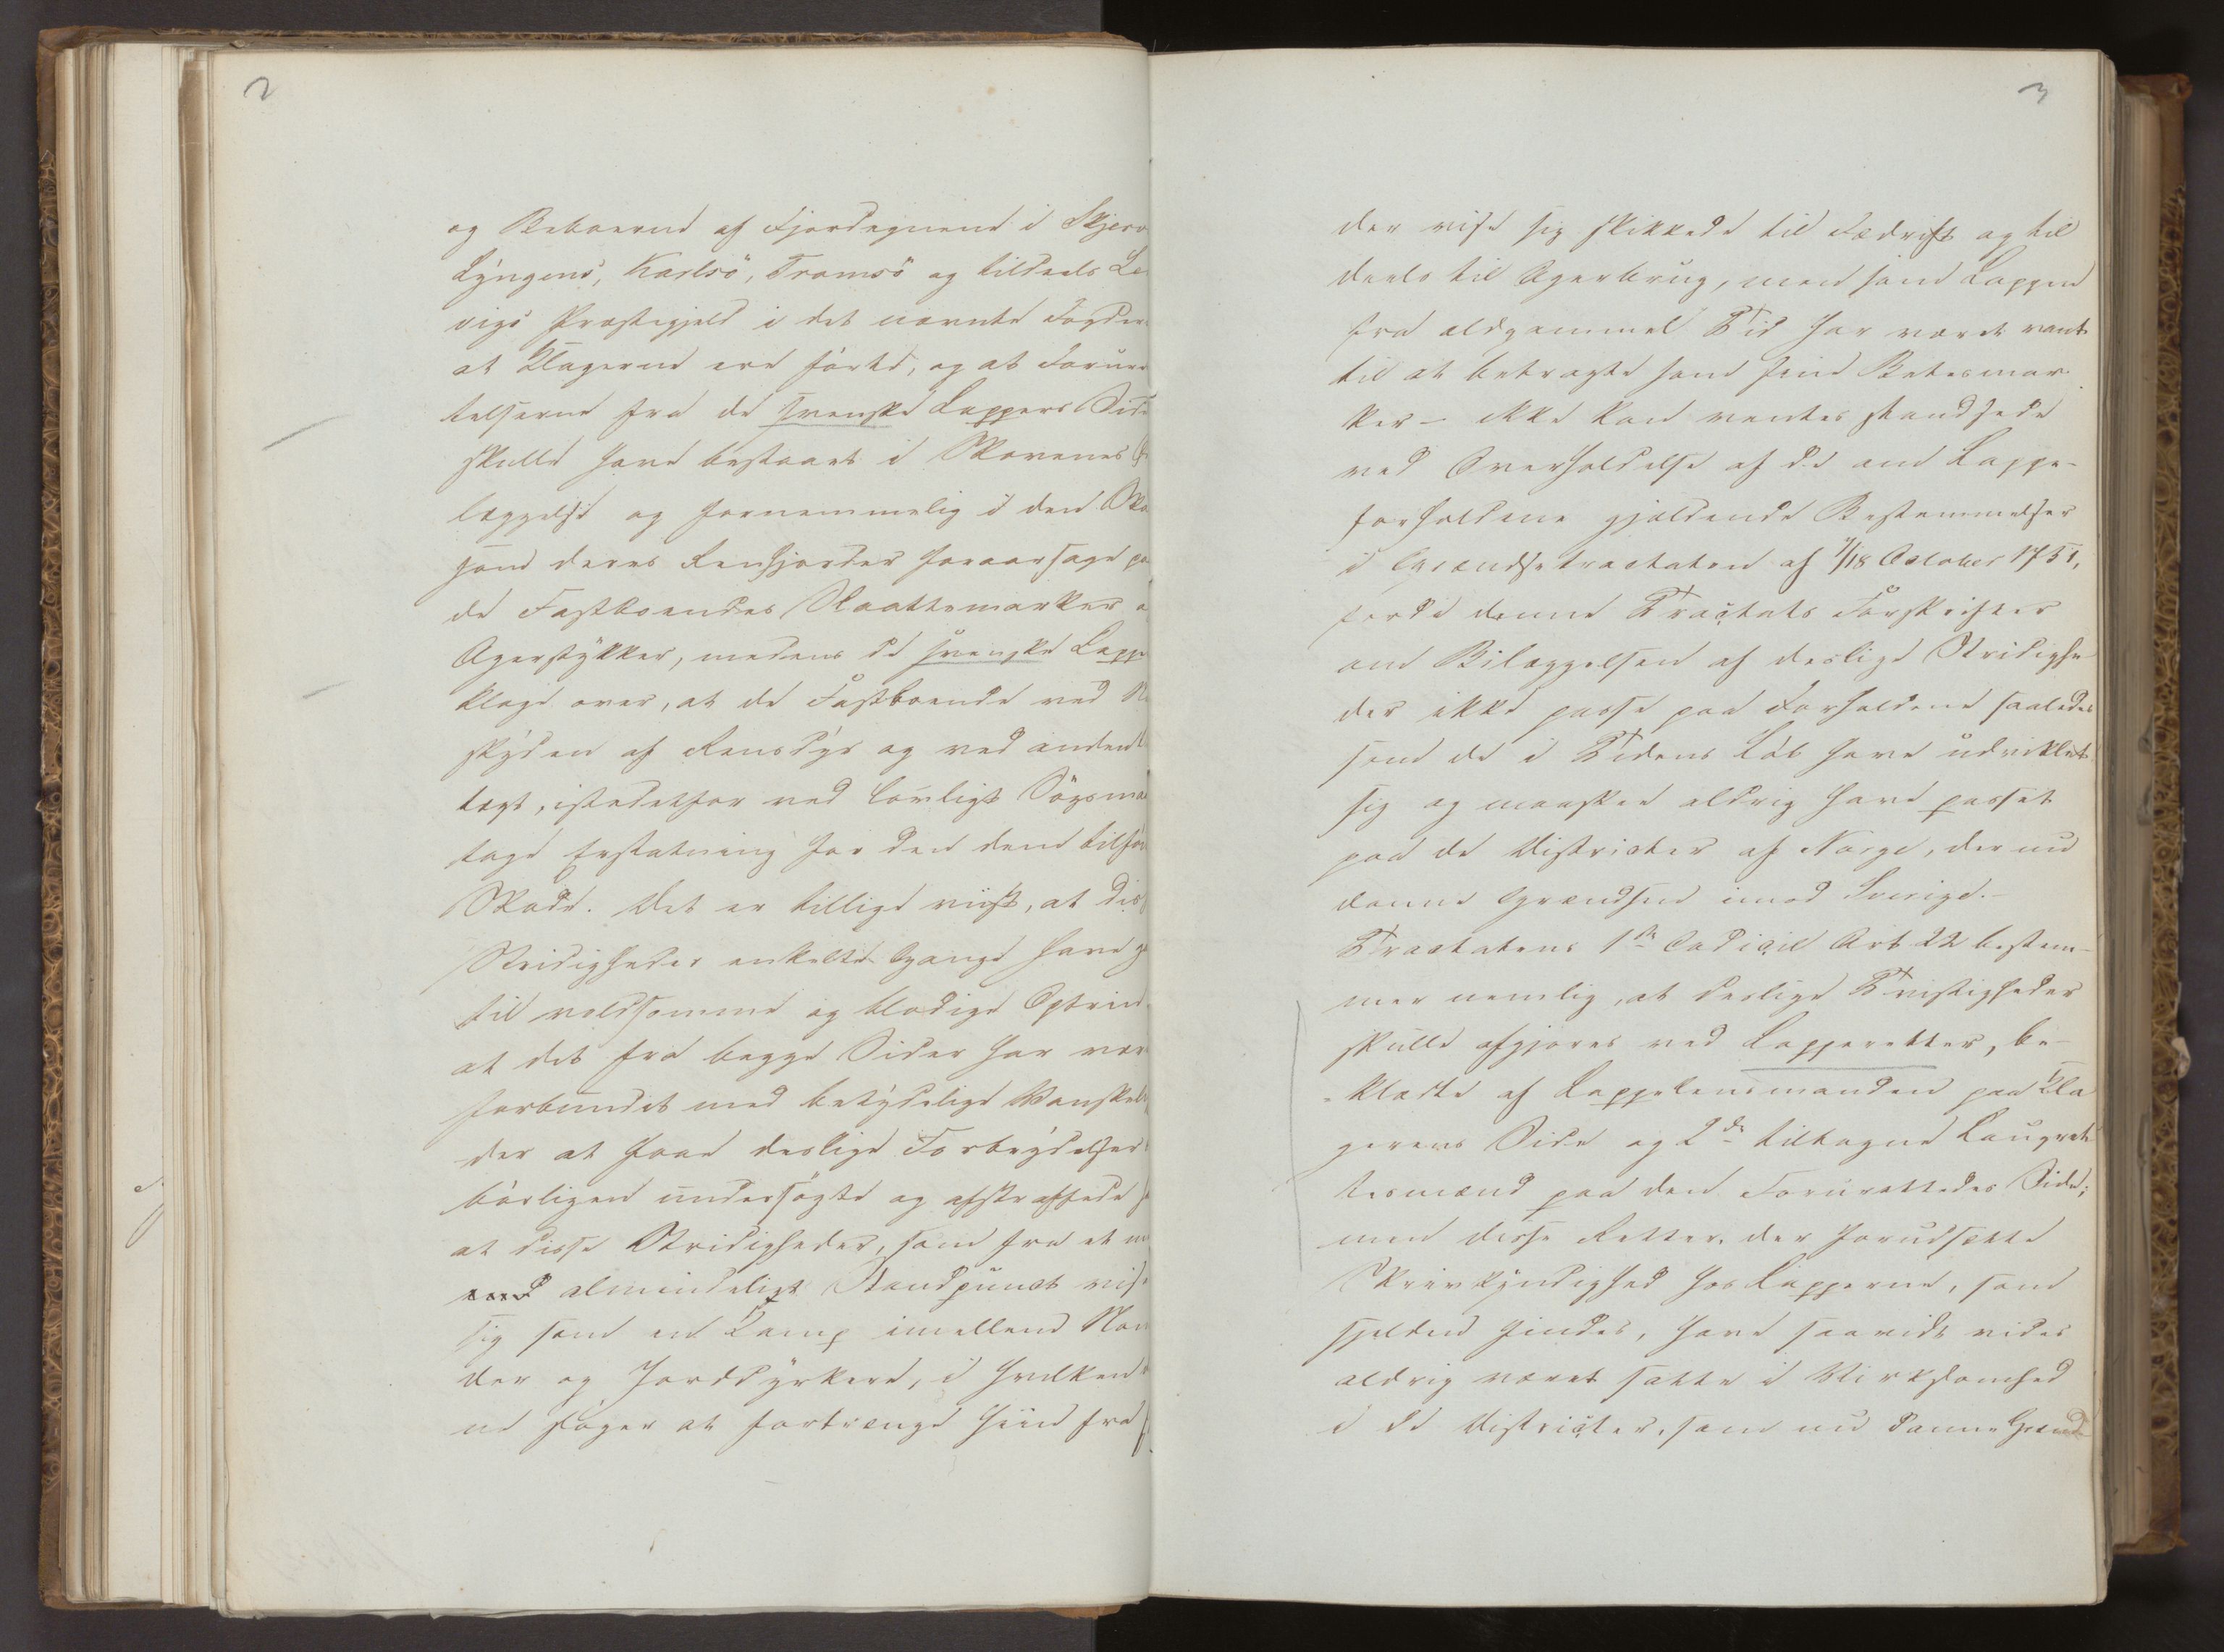 2
og Beboerne af Fjordegnene i Skjerv
Lyngens, Karlsö, Tromsö og tildeels Le
vigs Præstegjeld i det nævnte Fogder
at Klagerne ere førte, og at Foruret
telserne fra de svenske Lappers Side
skulle have bestaaet i Skovenes
læggelse og fornemmelig i den Ska
som deres Reenhjorder foraarsage pa
de Fastboendes Slaattemarker o
Agerstykker, medens de svenske Lappe
klage over, at de Fastboende ved Ne
skyden af Rensdyr og ved anden
tægt, istedetfor ved lovligt Søgsmaal
tage Erstatning for den dem tilføi
Skade. Det er tillige viist, at dis
Stridigheder enkelte Gange have g
til voldsomme og blodige Optrin
at det fra begge Sider har vær
forbundet med betydelige Vanskeli
der at faae deslige Forbrydelser
børligen undersøgte og afstraffede
at disse Stridigheder, som fra et m
almindeligt Standpunct vise
sig som en Kamp imellem Noma
der og Jorddyrkere, i hvilken
ne søger at fortrænge hiin fra
3
der vise sig skikkede til Fædrift og til
deels til Agerbrug, men som Lappen
fra ældgammel Tid har været vant
til at betragte som sine Betesmar
ker – ikke kan ventes standsede
ved Overholdelse af de om Lappe-
forholdene gjældende Bestemmelser
i Grændsetractaten af 7/18 October 1751,
fordi denne Tractats Forskrifter
om Bilæggelsen af deslige Stridighe
der ikke passe paa Forholdene saaledes
som de i Tidens Løb have udviklet
sig og maaskee aldrig have passet
paa de Districter af Norge, der nu
danne Grændsen imod Sverige.–
Tractatens 1ste Codicil Art 22 bestem-
mer nemlig, at deslige Tvistigheder
skulle afgjøres ved Lapperetter, be-
klædte af Lappelensmanden paa Kla
gerens Side og 2de tiltagne Laugret
tesmænd paa den Forurettedes Side;
men disse Retter, der forudsætte
Skrivkyndighed hos Lapperne, som
sjelden findes, have saavidt vides
aldrig været satte i Virksomhed
i de Districter, som nu danne Grænd